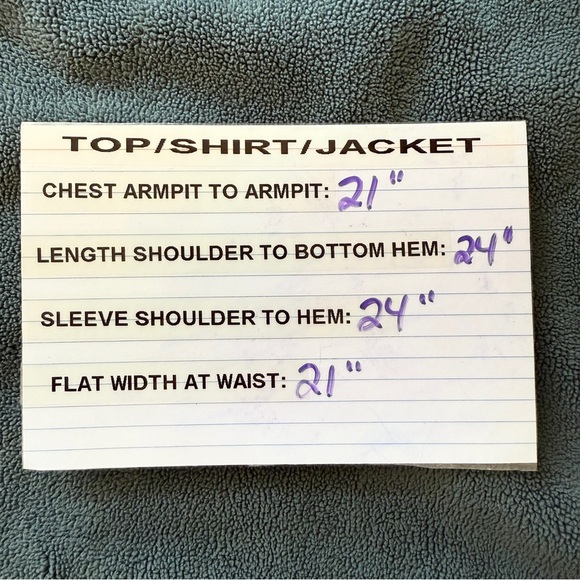 TOP/SHIRT/JACKET
CHEST ARMPIT TO ARMPIT: 21"
LENGTH SHOULDER TO BOTTOM HEM: 24"
SLEEVE SHOULDER TO HEM: 24"
FLAT WIDTH AT WAIST: 21"